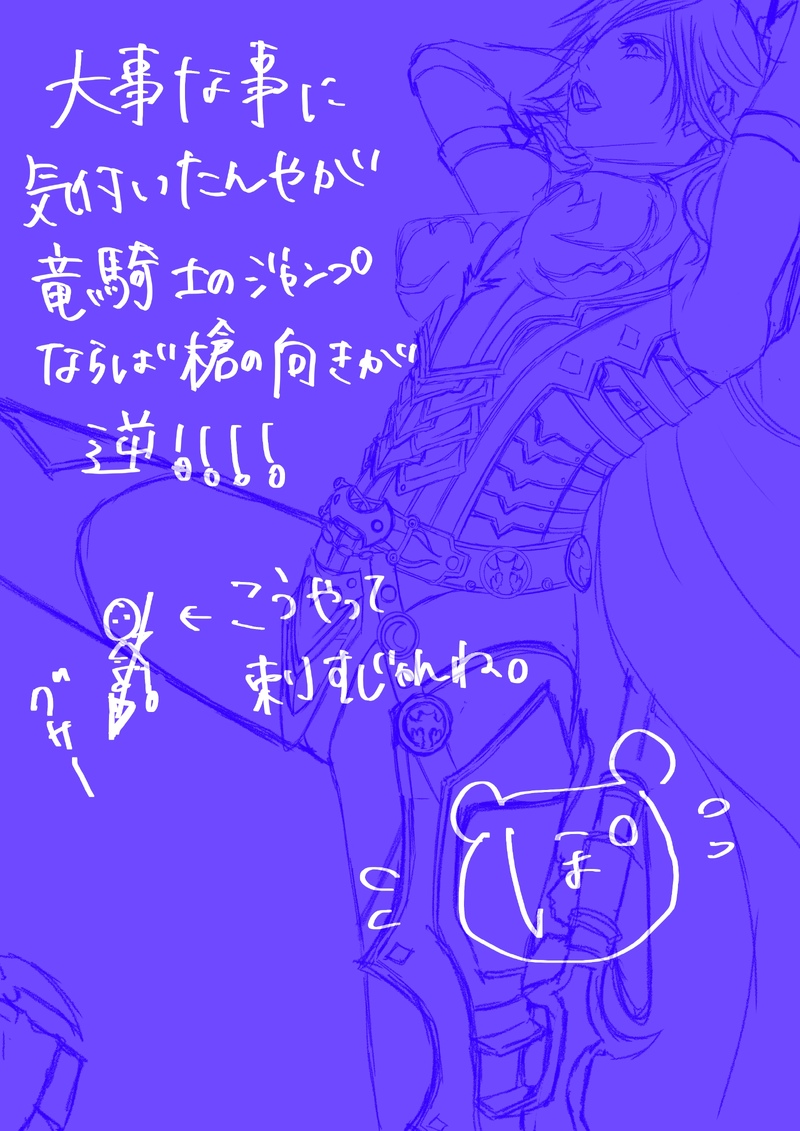 大事な事に
気付いたんやが
竜騎士のジャンプ
ならば槍の向きが
逆!!!!
←こうやって
刺すじゃんね。
グサー
ぽ